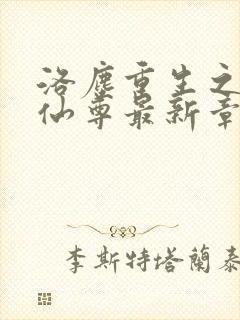 洛塵重生之
仙尊最新章
李斯特塔蘭泰